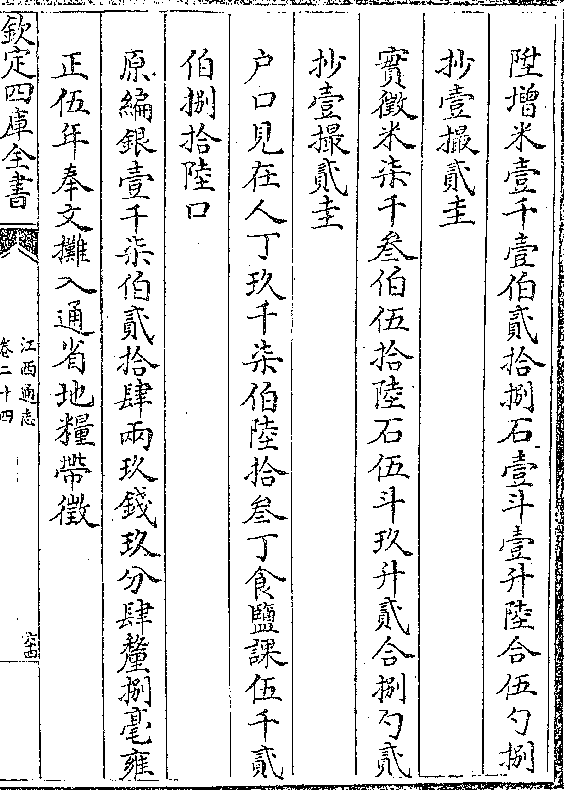 陞增米壹千壹伯貳拾捌石壹斗壹升陸合伍勺捌
抄壹撮貳圭
實徵米柒千叁伯伍拾陸石伍斗玖升貳合捌勺貳
抄壹撮貳圭
户口見在人丁玖千柒伯陸拾叁丁食鹽課伍千貳
伯捌拾陸口
原編銀壹千柒伯貳拾肆兩玖錢玖分肆釐捌毫雍
正伍年奉文攤入通省地糧帶徵
欽定四庫全書
江西通志
卷二十四
六十四